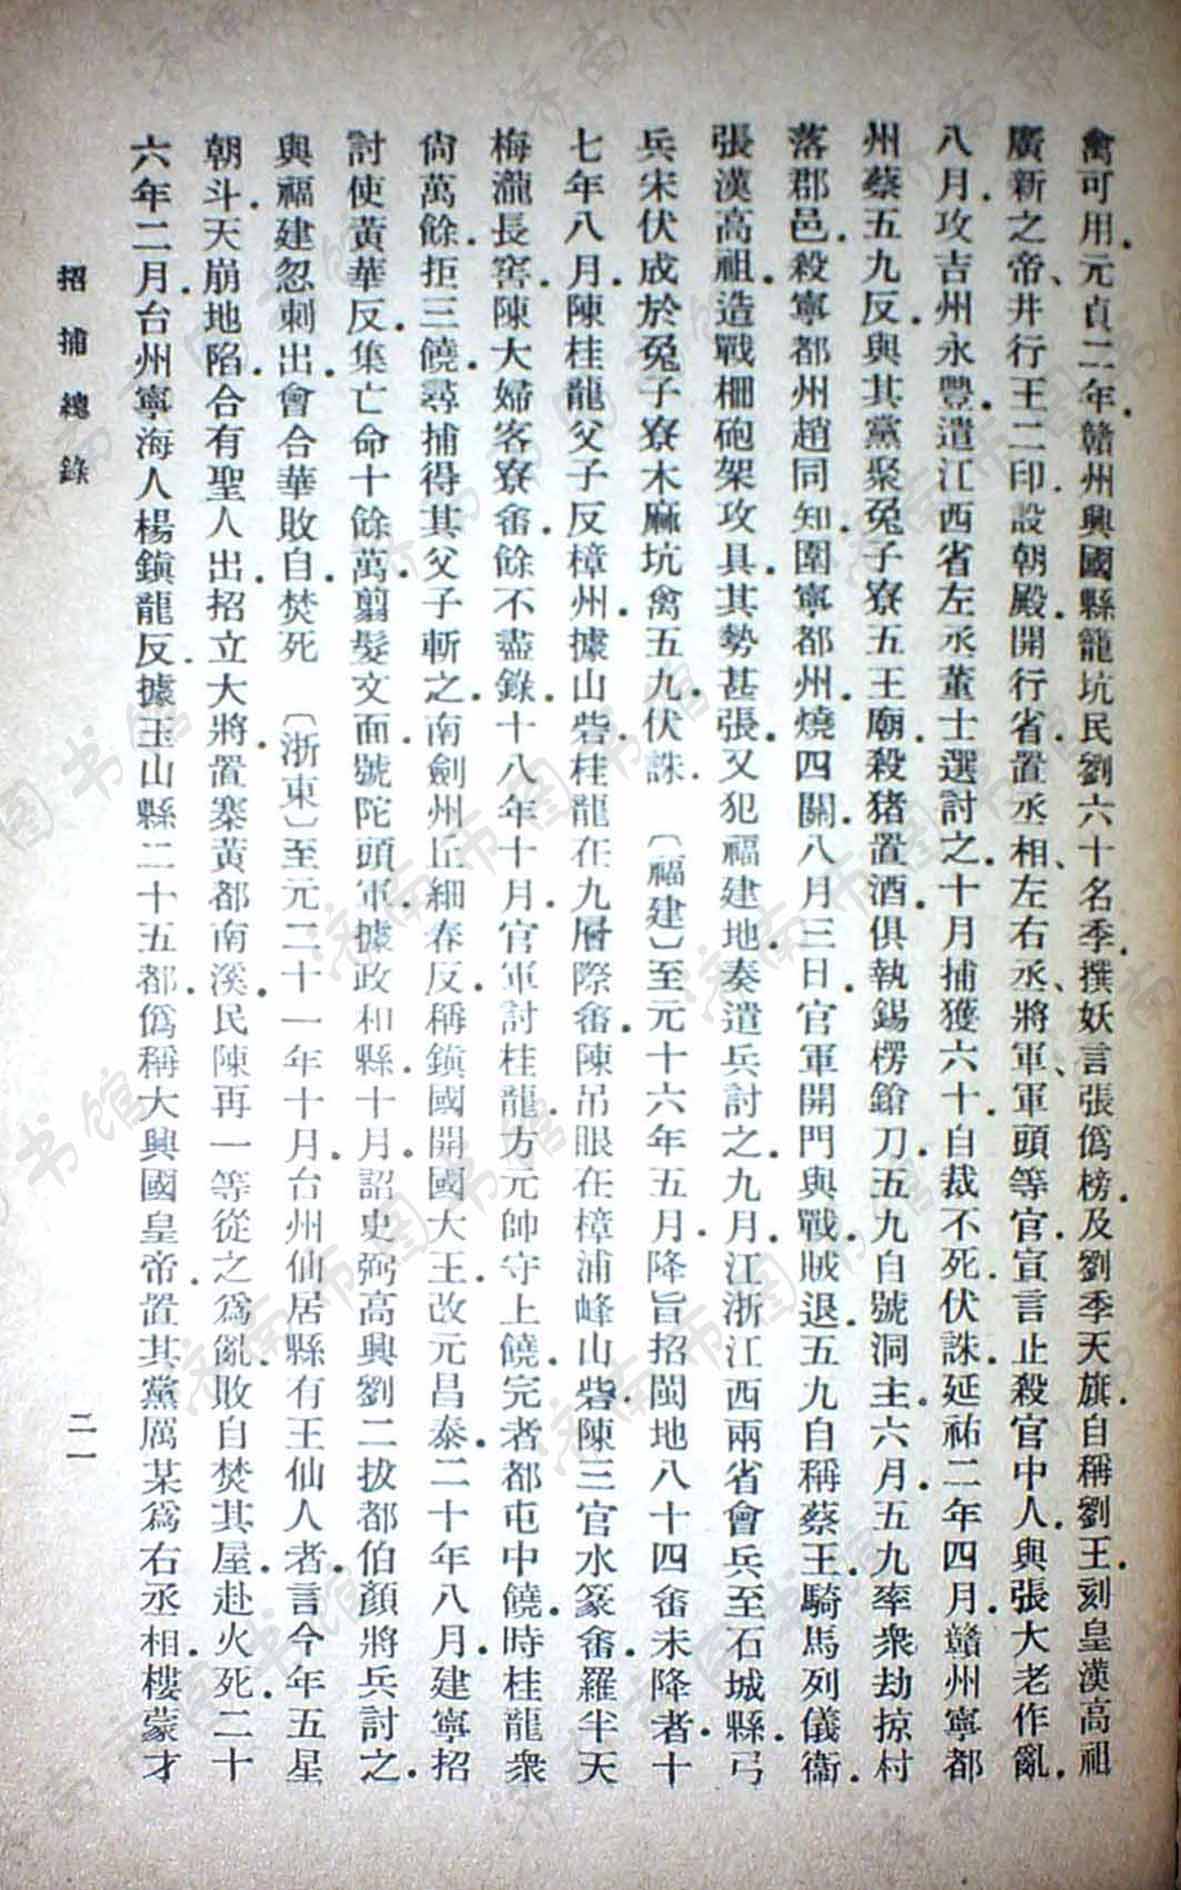 禽可用．元貞二年．贛州興國縣籠坑民劉六十名季．撰妖言張僞榜．及劉季天旗．自稱劉王．刻皇漢高祖
廣新之帝、井行王二印．設朝殿．開行省．置丞相、左右丞、將軍、軍頭等官．宣言止殺官中人．與張大老作亂．
八月．攻吉州永豐．遣江西省左丞董士選討之．十月捕獲六十．自裁不死．伏誅．延祐二年四月．贛州寧都
州蔡五九反．與其黨聚兔子寮五王廟．殺猪置酒．俱執錫楞鎗刀．五九自號洞主．六月．五九率衆劫掠村
落郡邑．殺寧都州趙同知．圍寧都州．燒四關．八月三日．官軍開門與戰．賊退．五九自稱蔡王．騎馬列儀衞．
張漢高祖．造戰柵砲架攻具．其勢甚張．又犯福建地．奏遣兵討之．九月．江浙江西兩省會兵至石城縣．弓
兵宋伏成於兔子寮木麻坑禽五九．伏誅．〔福建〕至元十六年五月．降旨招閩地八十四畬未降者．十
七年八月．陳桂龍父子反樟州．據山砦．桂龍在九層際畬．陳吊眼在樟浦峰山砦．陳三官水篆畬．羅半天
梅瀧長窖．陳大婦客寮畬．餘不盡錄．十八年十月．官軍討桂龍．方元帥守上饒．完者都屯中饒．時桂龍衆
尙萬餘．拒三饒．尋捕得其父子斬之．南劍州丘細春反．稱鎭國開國大王．改元昌泰．二十年八月．建寧招
討使黃華反．集亡命十餘萬．翦髮文面．號陀頭軍．據政和縣．十月．詔史弼高興劉二拔都伯顏將兵討之．
與福建忽剌出．會合華敗自焚死　〔浙東〕至元二十一年十月．台州仙居縣有王仙人者．言今年五星
朝斗．天崩地陷．合有聖人出．招立大將．置寨黃都南溪．民陳再一等從之爲亂．敗自焚其屋．赴火死．二十
六年二月．台州寧海人楊鎭龍反．據玉山縣二十五都．僞稱大興國皇帝．置其黨厲某爲右丞相．樓蒙才
招捕總錄
二一